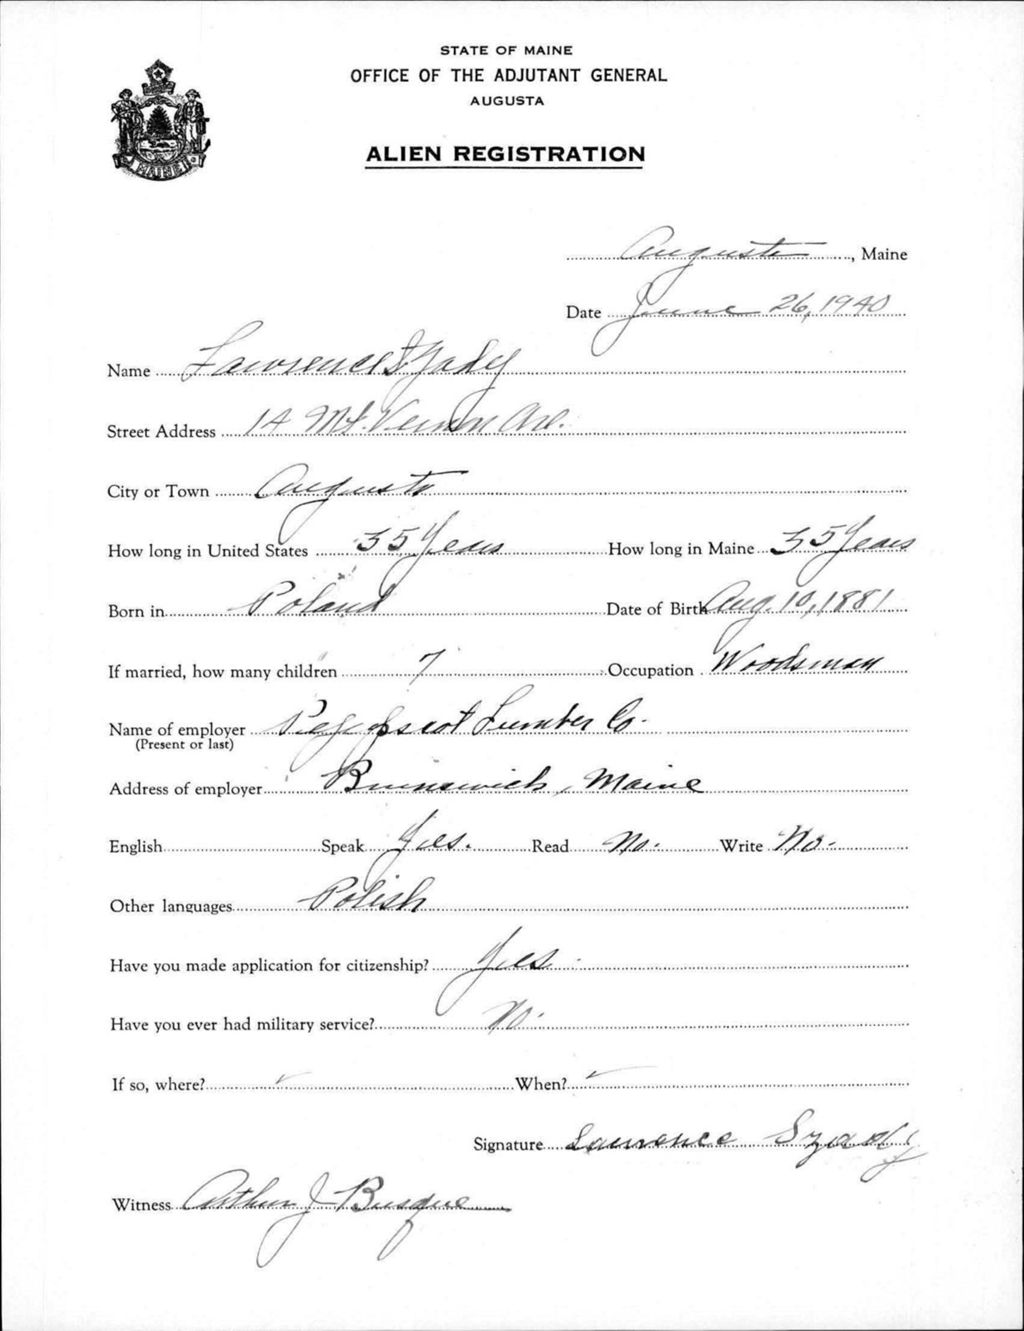 STATE OF MAINE
OFFICE OF THE ADJUTANT GENERAL
AUGUSTA
ALIEN REGISTRATION
MAINE
Augusta, Maine
Date June 26, 1940
Name Lawrence Szady
Street Address 14 Mt. Vernon Ave.
City or Town Augusta
How long in United States 35 Years How long in Maine 35 Years
Born in Poland Date of Birth Aug. 10, 1881
If married, how many children 7 Occupation Woodsman
Name of employer Pejepscot Lumber Co.
(Present or last)
Address of employer Brunswick, Maine
English Speak Yes. Read No. Write No.
Other languages Polish
Have you made application for citizenship? Yes.
Have you ever had military service? No.
If so, where? When?
Signature Lawrence Szady
Witness Arthur J Busque